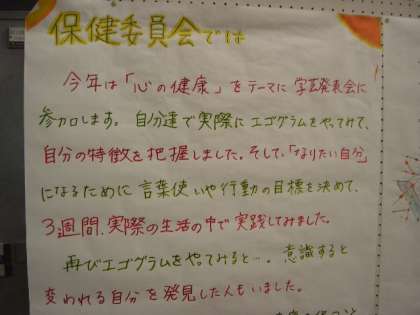 保健委員会では
今年は「心の健康」をテーマに学芸発表会に
参加します。自分達で実際にエゴグラムをやってみて、
自分の特徴を把握しました。そして、「なりたい自分」
になるために言葉使いや行動の目標を決めて、
3週間、実際の生活の中で実践してみました。
再びエゴグラムをやってみると…。意識すると
変われる自分を発見した人もいました。